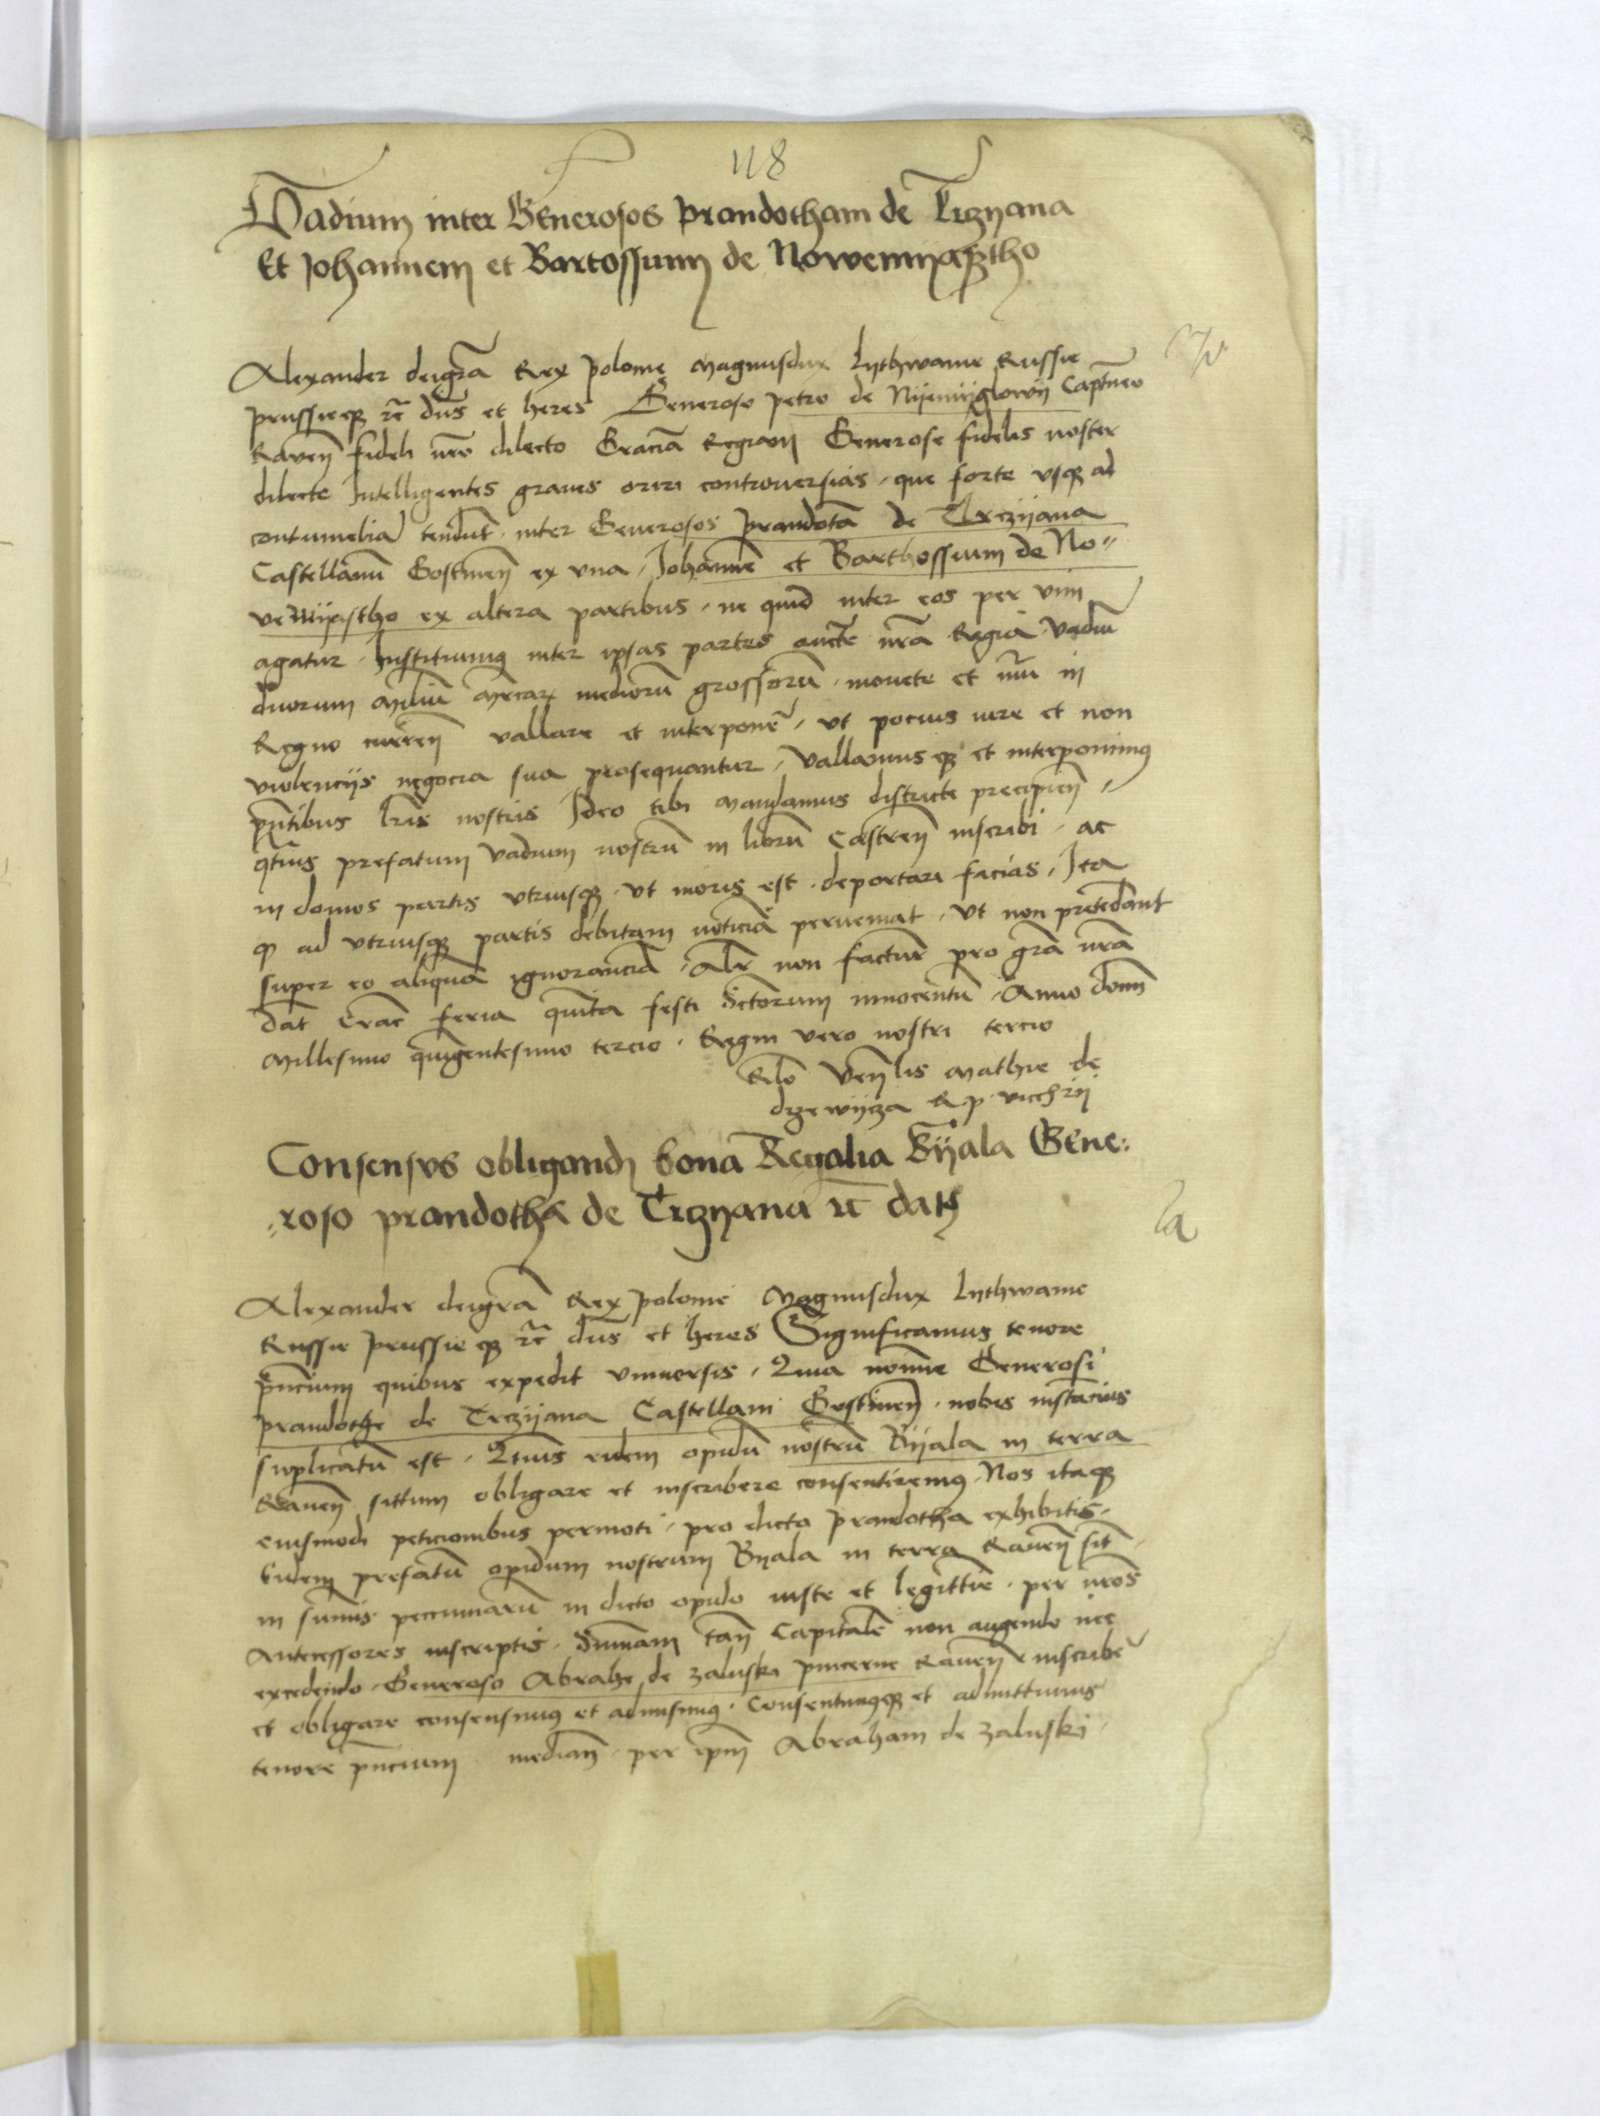 118
Vadium inter Generosos Prandotham de Trzyana
Et Johannem et Bartossum de Nowemyastho
Alexander deigra Rex Polonie Magnusdux Lythwanie Russie
prussieq3 rc dns et heres Generoso petro de Nyemyglowy Captneo
Raven fideli nro dilecto Graciā Regiam Generose fidelis noster
dilecte Intelligentes graues oriri controuersias, que forte vsq3 ad
contumeliā tendunt, inter Generosos prandotā de Trczyana
Castellanū Gostinen ex vna, Johannē et Barthossium de No〃
vemyastho ex altera partibus, ne quid inter eos per vim
agatur, Instituimus inter ipsas partes aucte nrā Regia vadiū
duorum Miliū Mrcar mediorū grossorū, monete et nūi in
Regno curren vallare et interponē, vt pocius iure et non
violencijs negocia sua prosequantur, Vallamusq3 et interponimus
pntibus lris nostris Ideo tibi mandamus districte precipien,
qtius prefatum vadium nostrū in librū Castren inscribi, ac
in domos partis vtriusq3, vt moris est, deportari facias, Ita
q ad vtriusq3 partis debitam noticiā perueniat, vt non pretēdant
super eo aliquā ignoranciā, Alr non factur pro grā nrā
dat Crac feria quīta festi Sctorum innocentū, Anno domi
Millesimo quīgentesimo tercio, Regni vero nostri tercio
Rlo Venlis Mathie de
drzewycza R p vicchrij
Consensvs obligandi bona Regalia Byala Gene:
〃roso prandotha de Trzyana rc datus
Alexander deigrā Rex polonie Magnusdux Lythwanie
Russie prussieq3 rc dns et heres Significamus tenore
pncium quibus expedit vniuersis, Quia nomine Generosi
prandothe de Trczyana Castellani Gostinen, nobis instacius
suplicatū est, Qtius eidem opidū nostrū Byala in terra
Raven sittum obligare et inscribere consentiremus, Nos itaq3
eiusmodi peticionibus permoti, pro dicto prandotha exhibitis,
Eidem prefatū opidum nostrum Byala in terra Raven sit,
in sumis pecuniarū in dicto opido iuste et legittie, per nros
Antecessores inscriptis, Summam tam Capitalē non augendo nec
excedendo, Generoso Abrahe de Zaluski pincerne Raven, inscribē
et obligare consensimus et admisimus, Consentimusq3 et admittimus
tenore pncium median, per ipm Abraham de Zaluski,